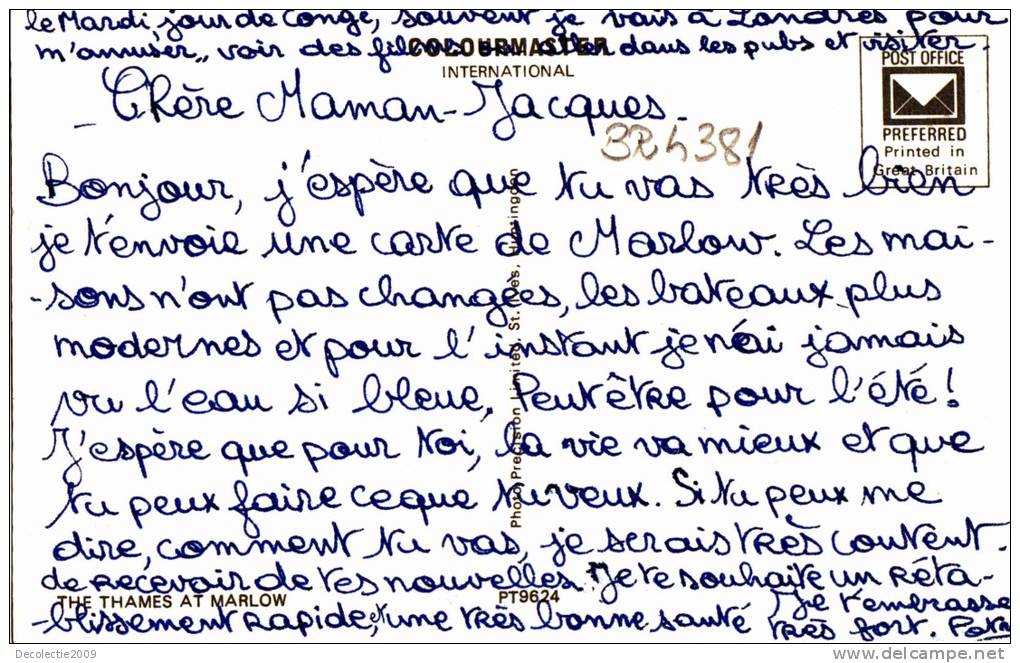 le Mardi, jour de congé, souvent je vais à Londres pour
m'amuser,, voir des films aller dans les pubs et visiter.
COLOURMASTER
INTERNATIONAL
POST OFFICE
PREFERRED
Printed in
Great Britain
- Chère Maman-Jacques.
BR4381
Bonjour, j'espère que tu vas très bien
je t'envoie une carte de Marlow. Les mai-
-sons n'ont pas changées, les bateaux plus
modernes et pour l'instant je n'ai jamais
vu l'eau si bleue. Peut être pour l'été!
J'espère que pour toi, la vie va mieux et que
tu peux faire ce que tu veux. Si tu peux me
dire, comment tu vas, je serais très content.
de recevoir de tes nouvelles. Je te souhaite un réta-
-blissement rapide, et une très bonne santé
Je t'embrasse
très fort.
THE THAMES AT MARLOW
PT9624
Photo Precision Limited, St. Ives, Huntingdon
Decolectie2009
delcampe.net